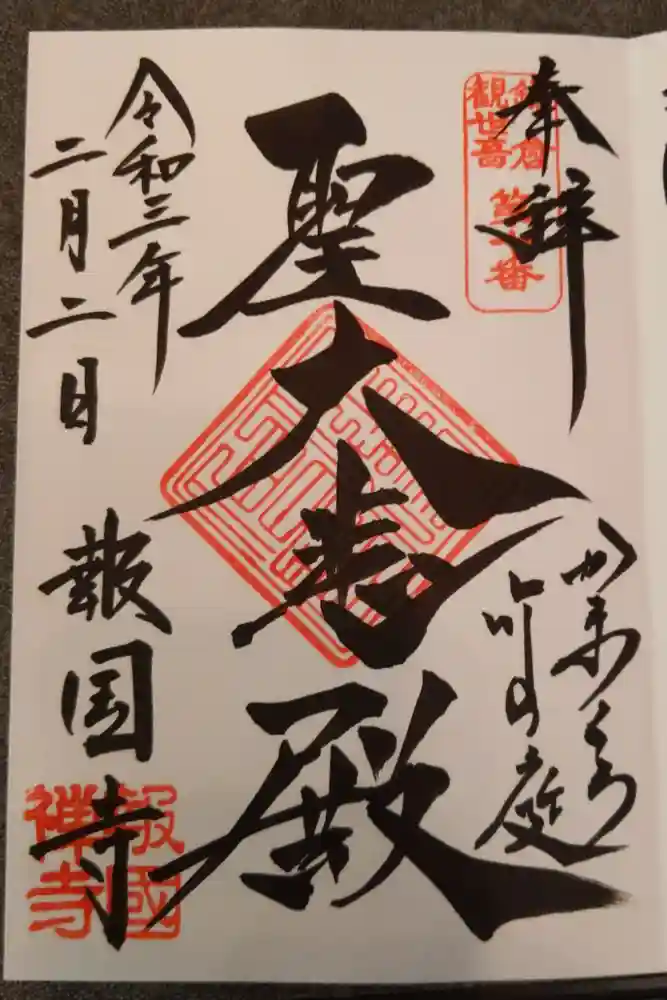 奉拝
鎌倉
観世音
第十番
かまくら
竹の庭
聖大悲殿
令和三年
二月二日
報国寺
報國
禅寺